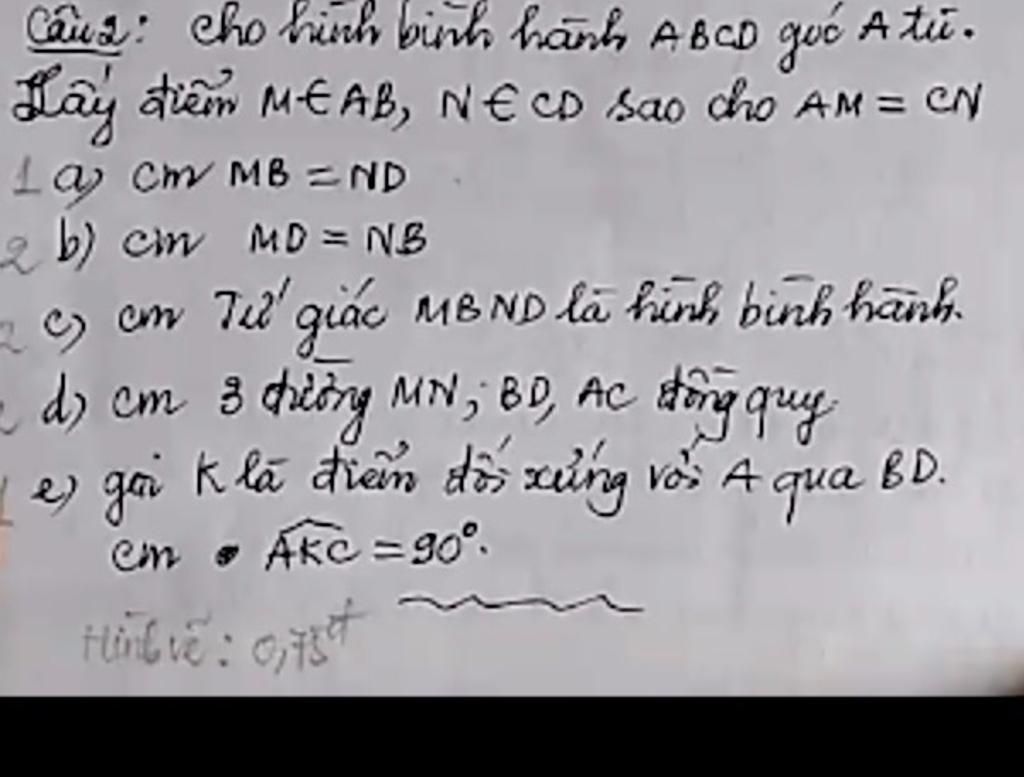 Câu 2: Cho hình bình hành ABCD góc A tù.
Lấy điểm M∈AB, N∈CD sao cho AM = CN
1 a) cm MB = ND
2 b) cm MD = NB
2 c) cm Tứ giác MBND là hình bình hành.
d) cm 3 đường MN; BD, AC đồng quy
1 e) gọi K là điểm đối xứng với A qua BD.
cm • \widehat{AKC} = 90°.
Hình vẽ: 0,75đ